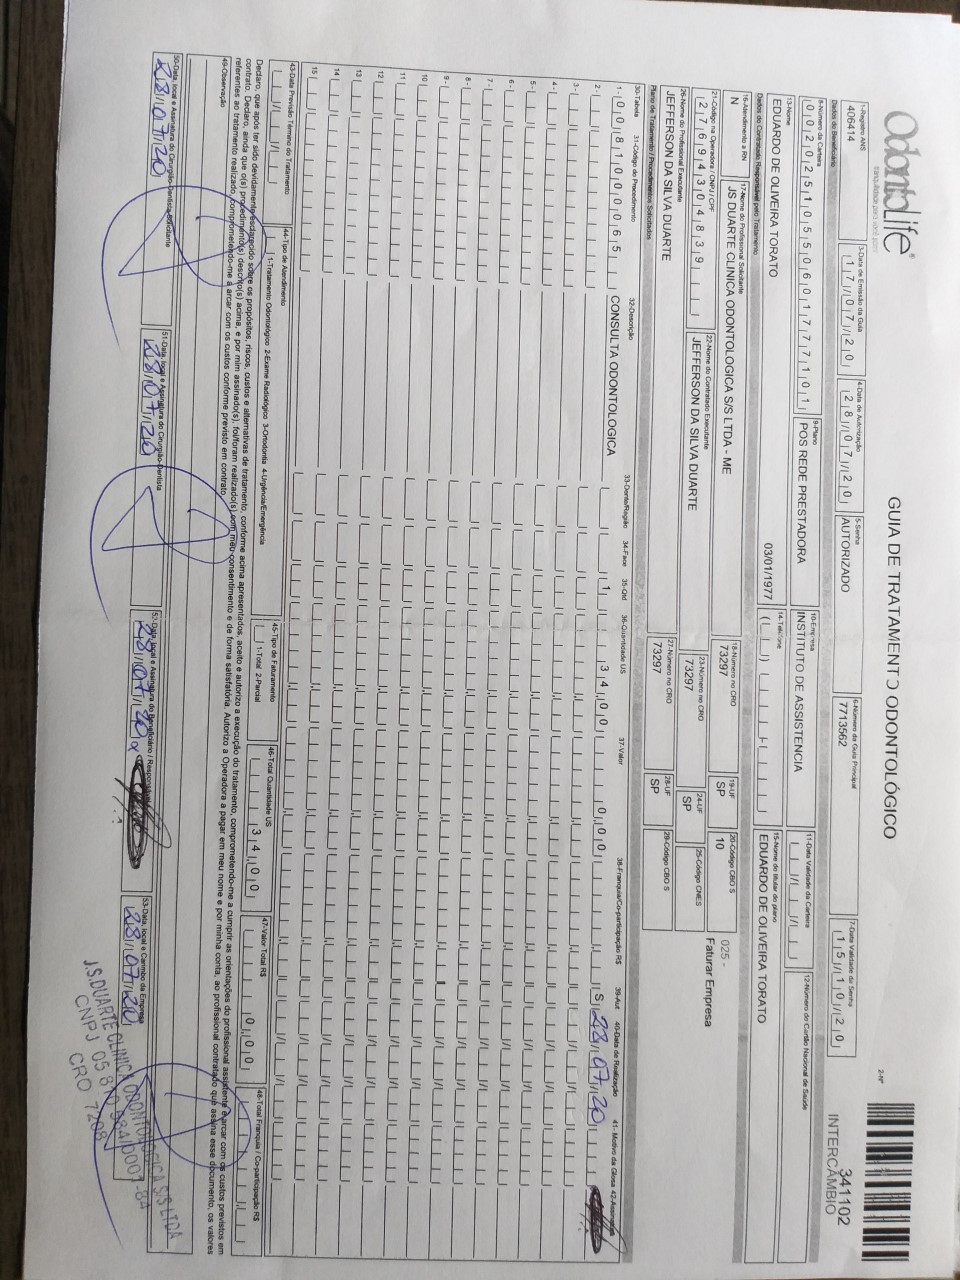 OdontoLife®
GUIA DE TRATAMENTO ODONTOLÓGICO
2-Nº
341102
INTERCÂMBIO
1-Registro ANS
406414
3-Data de Emissão da Guia
17/07/20
4-Data de Autorização
28/07/20
5-Senha
AUTORIZADO
6-Número da Guia Principal
7713562
7-Data Validade da Senha
15/10/20
Dados do Beneficiário
8-Número da Carteira
00202510550601777101
9-Plano
POS REDE PRESTADORA
10-Empresa
INSTITUTO DE ASSISTENCIA
11-Data Validade da Carteira
12-Número do Cartão Nacional de Saúde
13-Nome
EDUARDO DE OLIVEIRA TORATO
03/01/1977
14-Telefone
15-Nome do titular do plano
EDUARDO DE OLIVEIRA TORATO
Dados do Contratado Responsável pelo Tratamento
16-Atendimento a RN
N
17-Nome do Profissional Solicitante
JS DUARTE CLINICA ODONTOLOGICA S/S LTDA - ME
18-Número no CRO
73297
19-UF
SP
20-Código CBO S
10
025 -
Faturar Empresa
21-Código na Operadora / CNPJ / CPF
27694304839
22-Nome do Contratado Executante
JEFFERSON DA SILVA DUARTE
23-Número no CRO
73297
24-UF
SP
25-Código CNES
26-Nome do Profissional Executante
JEFFERSON DA SILVA DUARTE
27-Número no CRO
73297
28-UF
SP
29-Código CBO S
Plano de Tratamento / Procedimentos Solicitados
30-Tabela 31-Código do Procedimento 32-Descrição 33-Dente/Região 34-Face 35-Qtd 36-Quantidade US 37-Valor 38-Franquia/Co-participação R$ 39-Aut 40-Data de Realização 41- Motivo da Glosa 42-Assinatura
1- 00 81000065 CONSULTA ODONTOLOGICA 1 34,00 0,00 S 28/07/20
2-
3-
4-
5-
6-
7-
8-
9-
10
11
12
13
14
15
43-Data Previsão Término do Tratamento
44-Tipo de Atendimento
1-Tratamento Odontológico 2-Exame Radiológico 3-Ortodontia 4-Urgência/Emergência
45-Tipo de Faturamento
1-Total 2-Parcial
46-Total Quantidade US
34,00
47-Valor Total R$
0,00
48-Total Franquia / Co-participação R$
Declaro, que após ter sido devidamente esclarecido sobre os propósitos, riscos, custos e alternativas de tratamento, conforme acima apresentados, aceito e autorizo a execução do tratamento, comprometendo-me a cumprir as orientações do profissional assistente e arcar com os custos previstos em
contrato. Declaro, ainda que o(s) procedimento(s) descrito(s) acima, e por mim assinado(s), foi/foram realizado(s) com meu consentimento e de forma satisfatória. Autorizo a Operadora a pagar em meu nome e por minha conta, ao profissional contratado que assina esse documento, os valores
referentes ao tratamento realizado, comprometendo-me a arcar com os custos conforme previsto em contrato.
49-Observação
50-Data, local e Assinatura do Cirurgião-Dentista Solicitante
28/07/20
51-Data, local e Assinatura do Cirurgião-Dentista
28/07/20
52-Data, local e Assinatura do Beneficiário / Responsável
28/07/20
53-Data, local e Carimbo da Empresa
28/07/20
J.S.DUARTE CLINICA ODONTOLOGICA S/S LTDA